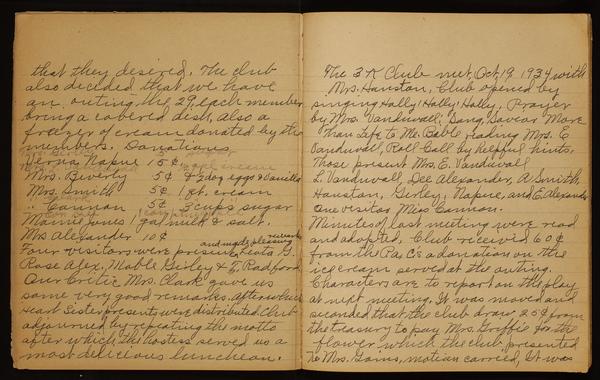 that they desired. The club
also decided that we have
an outing the 29, each member
bring a cobered dish, also a
freezer of cream donated by the
members. Donations
Verna Napue 15¢
Mrs. Beverly 5¢ & 2 dog eggs & Vanilla
Mrs. Smith 5¢ 1 pt. cream
" Cannon 5¢ 3 cups sugar
Mamie Jones 1 gal milk & salt.
Mrs Alexander 10¢
Four visitors were present Leota G.
and made pleasing remarks
Rose Alex, Mable Girley & E. Radford
Our Critic Mrs. Clark gave us
some very good remarks. After which
Heart Sister presents were distributed. Club
adjourned by repeating the motto
after which the hostess served us a
most delicious luncheon.
The 3 K Club met Oct, 19 1934 with
Mrs. Hauston, Club opened by
singing Holly! Holly! Holly, Prayer
by Mrs. Vanduvall, Song, Savior More
Than Life to Me. Bable reading Mrs. E
Vanduvall, Roll Call by helpful hints.
Those present Mrs. E. Vanduvall
L. Vanduvall, Dee Alexander, A. Smith,
Hauston, Girley, Napue, and E. Alexander
One visitor Miss Cannon.
Minutes of last meeting were read
and adopted. Club received 60¢
from the Pa, C's a donation on the
ice cream served at the outing.
Characters are to report on the play
at next meeting. It was moved and
seconded that the club draw 25¢ from
the treasury to pay Mrs. Griffie for the
flower which the club presented
to Mrs. Goins, motion carried, It was